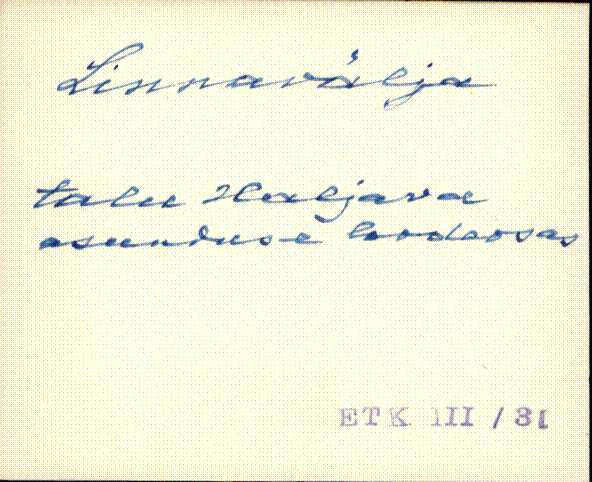 Linnavälja
talu Haljava
asunduse loodeosas
ETK III / 31